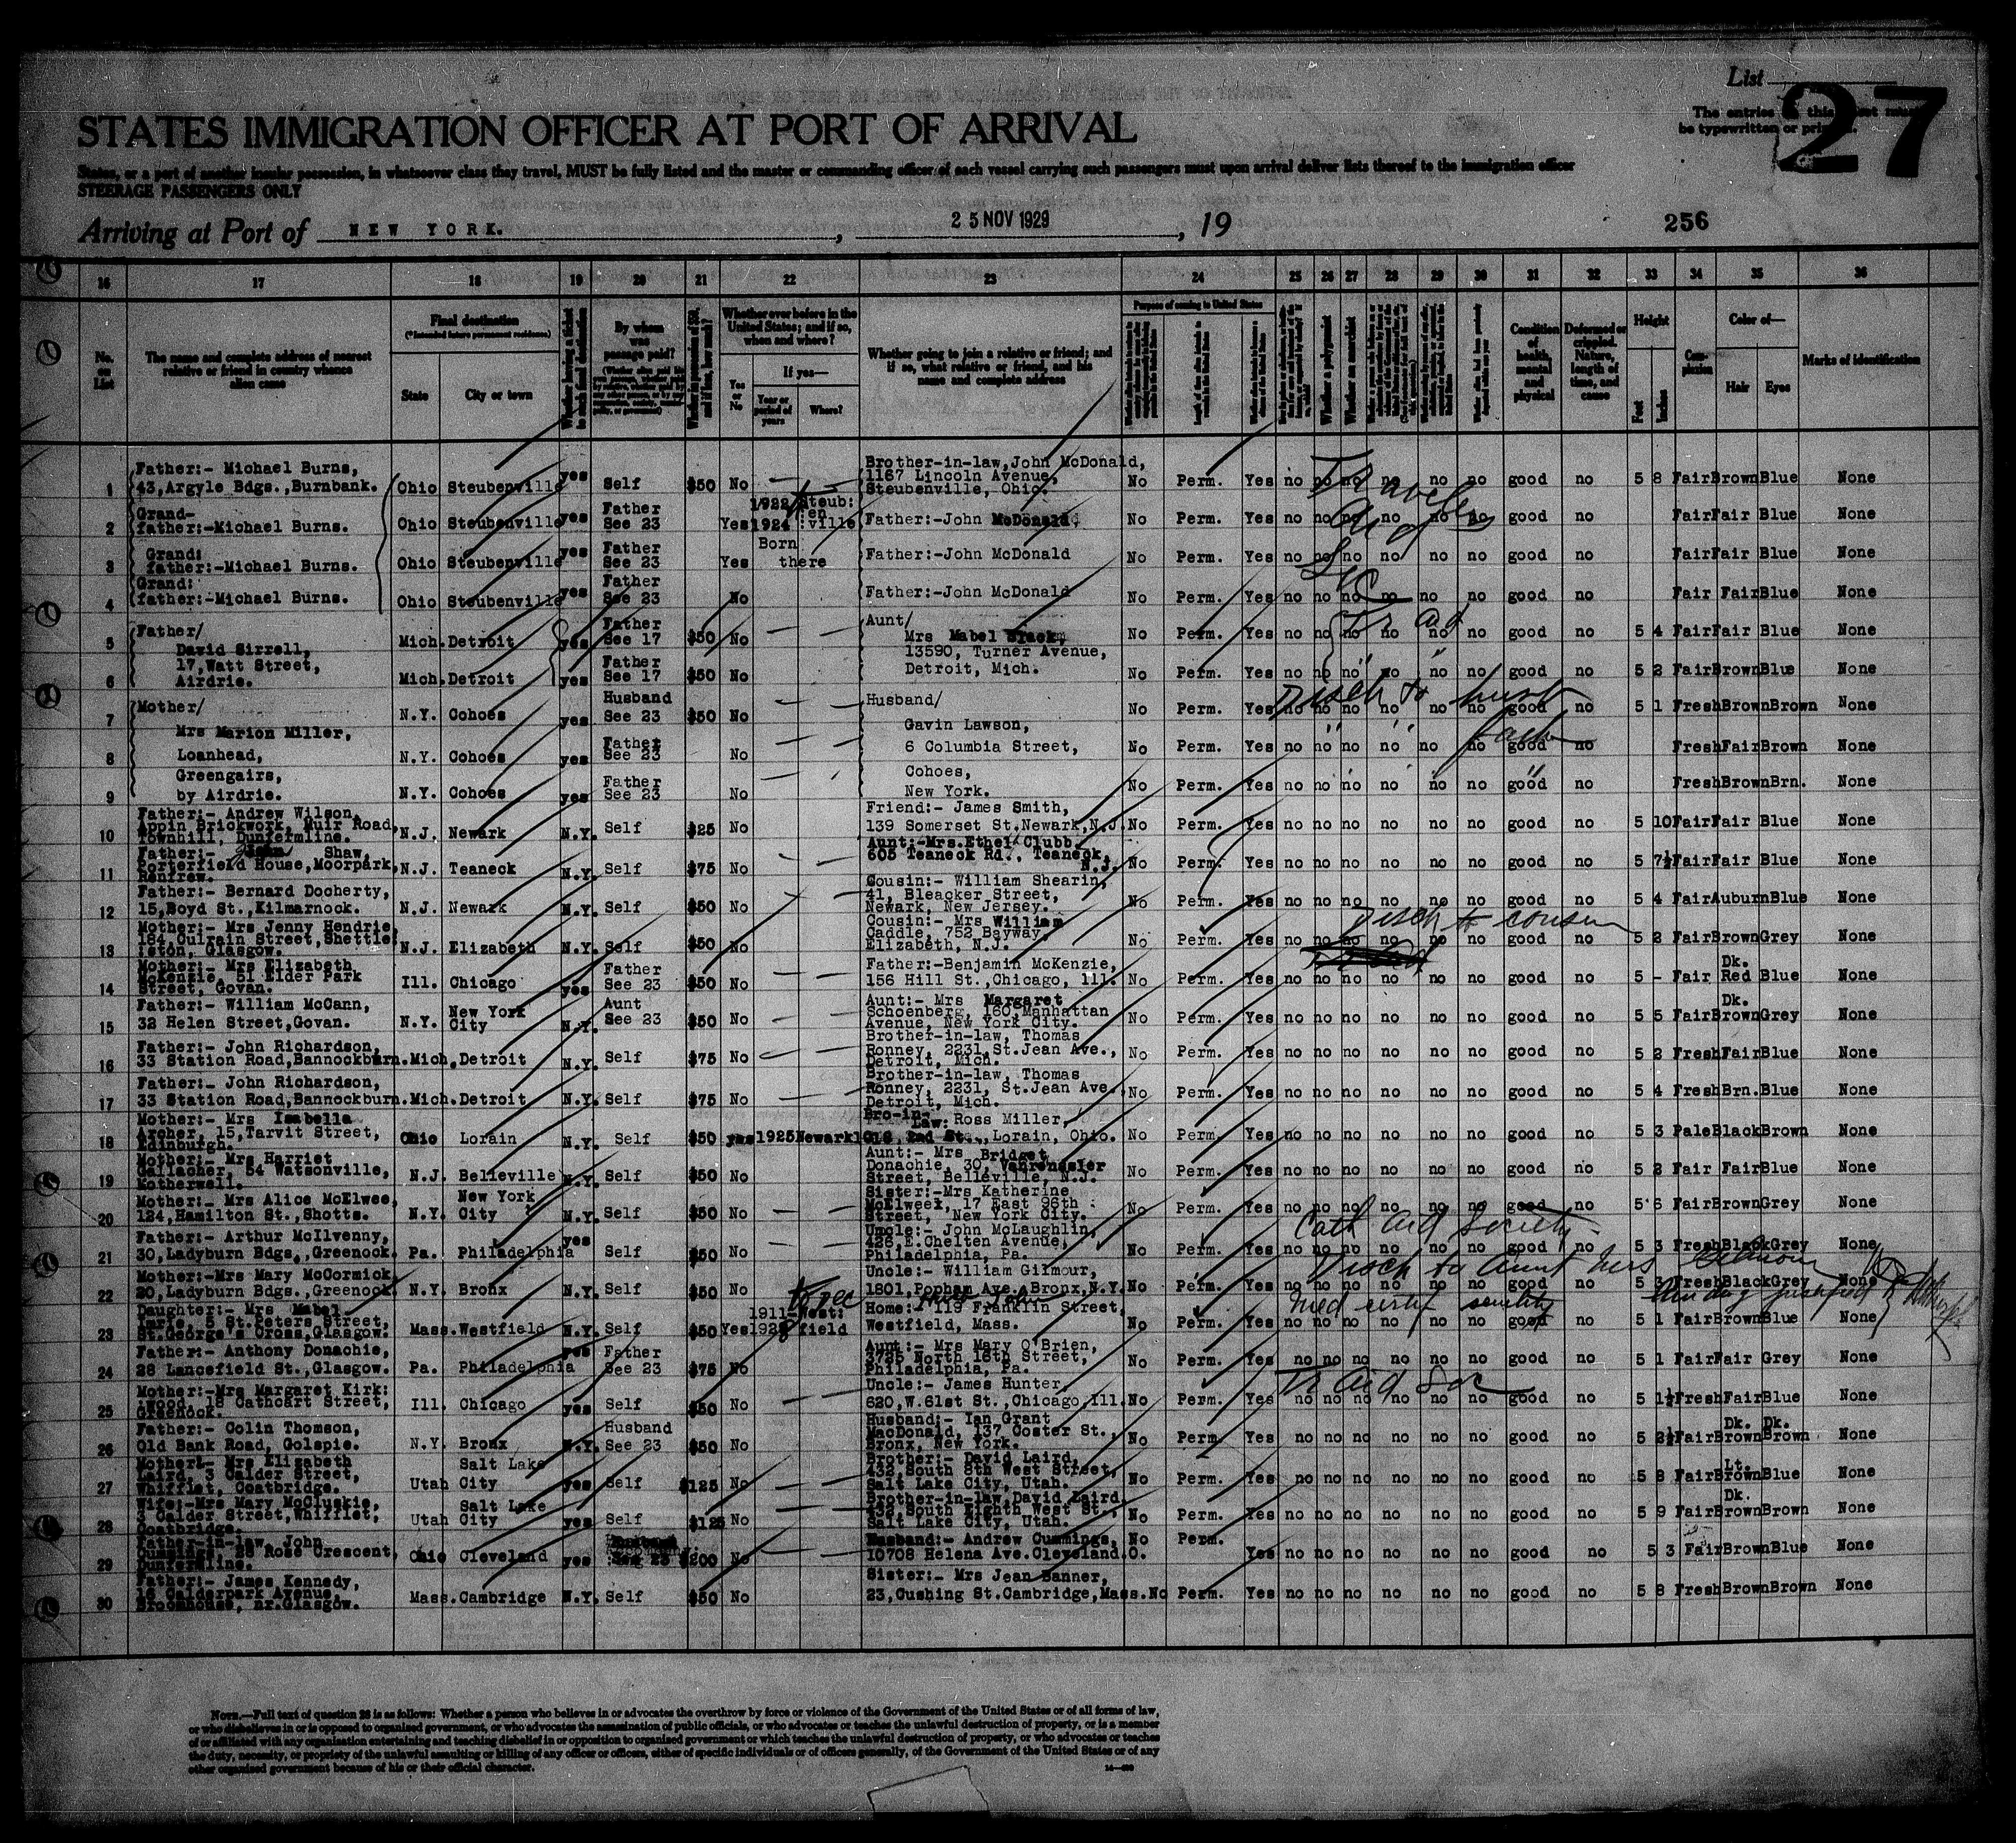 List
27
The entries on this sheet must
be typewritten or printed.
STATES IMMIGRATION OFFICER AT PORT OF ARRIVAL
States, or a port of another insular possession, in whatsoever class they travel, MUST be fully listed and the master or commanding officer of each vessel carrying such passengers must upon arrival deliver lists thereof to the immigration officer
STEERAGE PASSENGERS ONLY
Arriving at Port of NEW YORK. , 25 NOV 1929 , 19
256
16 17 18 19 20 21 22 23 24 25 26 27 28 29 30 31 32 33 34 35 36
No. on List
The name and complete address of nearest relative or friend in country whence alien came
Final destination
(*Intended future permanent residence)
State City or town
Whether having a ticket to such final destination
By whom was passage paid?
Whether ever before in the United States; and if so, when and where?
Yes or No
If yes—
Year or period of years
Where?
Whether going to join a relative or friend; and if so, what relative or friend, and his name and complete address
Purpose of coming to United States
Whether a polygamist
Whether an anarchist
Condition of health, mental and physical
Deformed or crippled. Nature, length of time, and cause
Height
Feet Inches
Complexion
Color of—
Hair Eyes
Marks of identification
1 Father:- Michael Burns, 43,Argyle Bdgs.,Burnbank. Ohio Steubenville yes Self $50 No Brother-in-law,John McDonald, 1167 Lincoln Avenue, Steubenville, Ohio. No Perm. Yes no no no no no no good no 5 8 Fair Brown Blue None
2 Grand-father:-Michael Burns. Ohio Steubenville yes Father See 23 Yes 1922 1924 Steub:en:ville Father:-John McDonald No Perm. Yes no no no no no no good no Fair Fair Blue None
3 Grand:father:-Michael Burns. Ohio Steubenville yes Father See 23 Yes Born there Father:-John McDonald No Perm. Yes no no no no no no good no Fair Fair Blue None
4 Grand:father:-Michael Burns. Ohio Steubenville yes Father See 23 No Father:-John McDonald No Perm. Yes no no no no no no good no Fair Fair Blue None
Travelers Aid Soc
5 Father/ David Sirrell, 17,Watt Street, Airdrie. Mich. Detroit yes Father See 17 $50 No Aunt/ Mrs Mabel Slack, 13590, Turner Avenue, Detroit, Mich. No Perm. Yes no no no no no no good no 5 4 Fair Fair Blue None
Tr aid
6 Mich. Detroit yes Father See 17 $50 No No Perm. Yes no no no no no no good no 5 2 Fair Brown Blue None
7 Mother/ Mrs Marion Miller, N.Y. Cohoes yes Husband See 23 $50 No Husband/ Gavin Lawson, No Perm. Yes no no no no no no good no 5 1 Fresh Brown Brown None
Disch to husb
8 Loanhead, N.Y. Cohoes yes Father See 23 No 6 Columbia Street, No Perm. Yes no no no no no no good no Fresh Fair Brown None
9 Greengairs, by Airdrie. N.Y. Cohoes yes Father See 23 No Cohoes, New York. No Perm. Yes no no no no no no good no Fresh Brown Brn. None
10 Father:- Andrew Wilson, Appin Brickwork, Muir Road, Townhill, Dunfermline. N.J. Newark N.Y. Self $25 No Friend:- James Smith, 139 Somerset St.Newark,N.J. No Perm. Yes no no no no no no good no 5 10 Fair Fair Blue None
11 Father:- Shaw, Porterfield House,Moorpark, Renfrew. N.J. Teaneck N.Y. Self $75 No Aunt:-Mrs.Ethel Clubb. 605 Teaneck Rd., Teaneck, N.J. No Perm. Yes no no no no no no good no 5 7½ Fair Fair Blue None
12 Father:- Bernard Docherty, 15,Boyd St.,Kilmarnock. N.J. Newark N.Y. Self $50 No Cousin:- William Shearin, 41, Bleacker Street, Newark, New Jersey. No Perm. Yes no no no no no no good no 5 4 Fair Auburn Blue None
13 Mother:- Mrs Jenny Hendrie, 184,Culrain Street,Shettle:ston, Glasgow. N.J. Elizabeth N.Y. Self $50 No Cousin:- Mrs William Caddle, 752 Bayway, Elizabeth, N.J. No Perm. Yes no no no no no no good no 5 2 Fair Brown Grey None
Disch to cousin
14 Mother:- Mrs Elizabeth McKenzie, 51 Elder Park Street, Govan. Ill. Chicago yes Father See 23 $50 No Father:-Benjamin McKenzie, 156 Hill St.,Chicago, Ill. No Perm. Yes no no no no no no good no 5 - Fair Dk. Red Blue None
15 Father:- William McCann, 32 Helen Street,Govan. N.Y. New York City N.Y. Aunt See 23 $50 No Aunt:- Mrs Margaret Schoenberg, 160,Manhattan Avenue, New York City. No Perm. Yes no no no no no no good no 5 5 Fair Dk. Brown Grey None
16 Father:- John Richardson, 33 Station Road,Bannockburn. Mich. Detroit N.Y. Self $75 No Brother-in-law, Thomas Ronney, 2231,St.Jean Ave., Detroit, Mich. No Perm. Yes no no no no no no good no 5 2 Fresh Fair Blue None
17 Father:- John Richardson, 33 Station Road,Bannockburn. Mich. Detroit N.Y. Self $75 No Brother-in-law, Thomas Ronney, 2231, St.Jean Ave. Detroit, Mich. No Perm. Yes no no no no no no good no 5 4 Fresh Brn. Blue None
18 Mother:- Mrs Isabella Archer, 15,Tarvit Street, Edinburgh. Ohio Lorain N.Y. Self $50 yes 1925 Newark Bro-in-Law: Ross Miller, 2nd St., Lorain, Ohio. No Perm. Yes no no no no no no good no 5 3 Pale Black Brown None
19 Mother:- Mrs Harriet Gallacher, 54 Watsonville, Motherwell. N.J. Belleville N.Y. Self $50 No Aunt:- Mrs Bridget Donachie, 30, Street, Belleville, N.J. No Perm. Yes no no no no no no good no 5 2 Fair Fair Blue None
20 Mother:- Mrs Alice McElwee, 124,Hamilton St.,Shotts. N.Y. New York City N.Y. Self $50 No Sister:-Mrs Katherine McElweek, 17 East 96th Street, New York City. No Perm. Yes no no no no no no good no 5 6 Fair Brown Grey None
21 Father:- Arthur McIlvenny, 30,Ladyburn Bdgs.,Greenock. Pa. Philadelphia yes Self $50 No Uncle:- John McLaughlin, 426,E.Chelten Avenue, Philadelphia, Pa. No Perm. Yes no no no no no no good no 5 3 Fresh Black Grey None
Cath Aid Society
22 Mother:-Mrs Mary McCormick, 20,Ladyburn Bdgs.,Greenock. N.Y. Bronx N.Y. Self $50 No Uncle:- William Gilmour, 1801,Popham Ave.,Bronx,N.Y. No Perm. Yes no no no no no no good no 5 3 Fresh Black Grey None
Disch to Aunt Mrs
23 Daughter:- Mrs Mabel 5 St.Peters Street, St.George's Cross,Glasgow. Mass. Westfield N.Y. Self $50 Yes 1911- 1928 West:field Home:- 119 Franklin Street, Westfield, Mass. No Perm. Yes no no no no no no good no 5 1 Fair Brown Blue None
Med certif senility
24 Father:- Anthony Donachie, 28 Lancefield St.,Glasgow. Pa. Philadelphia yes Father See 23 $75 No Aunt:- Mrs Mary O'Brien, 3725 North 16th Street, Philadelphia, Pa. No Perm. Yes no no no no no no good no 5 1 Fair Fair Grey None
25 Mother:-Mrs Margaret Kirk:wood, 18 Cathcart Street, Greenock. Ill. Chicago yes Self $50 No Uncle:- James Hunter, 620,W.61st St.,Chicago,Ill. No Perm. Yes no no no no no no good no 5 1½ Fresh Fair Blue None
Tr Aid Soc
26 Father:- Colin Thomson, Old Bank Road, Golspie. N.Y. Bronx N.Y. Husband See 23 $50 No Husband:- Ian Grant MacDonald, 737 Coster St., Bronx, New York. No Perm. Yes no no no no no no good no 5 2½ Fair Dk. Brown Dk. Brown None
27 Mother:- Mrs Elizabeth Laird, 3 Calder Street, Whifflet, Coatbridge. Utah Salt Lake City yes Self $125 No Brother:- David Laird, 432,South 8th West Street, Salt Lake City, Utah. No Perm. Yes no no no no no no good no 5 8 Fair Lt. Brown Blue None
28 Wife:-Mrs Mary McCluskie, 3 Calder Street,Whifflet, Coatbridge. Utah Salt Lake City yes Self $125 No Brother-in-law,David Laird, 432, South Eighth West St., Salt Lake City, Utah. No Perm. Yes no no no no no no good no 5 9 Fair Dk. Brown Brown None
29 Father-in-law, John Cummings, Rose Crescent, Dunfermline. Ohio Cleveland yes See 23 $200 No Husband:- Andrew Cummings, 10708 Helena Ave.Cleveland.O. No Perm. Yes no no no no no no good no 5 3 Fair Brown Blue None
30 Father:- James Kennedy, Calderpark Avenue, Broomhouse, nr.Glasgow. Mass. Cambridge N.Y. Self $50 No Sister:- Mrs Jean Banner, 23,Cushing St.Cambridge,Mass. No Perm. Yes no no no no no no good no 5 8 Fresh Brown Brown None
NOTE.—Full text of question 28 is as follows: Whether a person who believes in or advocates the overthrow by force or violence of the Government of the United States or of all forms of law,
or who disbelieves in or is opposed to organized government, or who advocates the assassination of public officials, or who advocates or teaches the unlawful destruction of property, or is a member
of or affiliated with any organization entertaining and teaching disbelief in or opposition to organized government or which teaches the unlawful destruction of property, or who advocates or teaches
the duty, necessity, or propriety of the unlawful assaulting or killing of any officer or officers, either of specific individuals or of officers generally, of the Government of the United States or of any
other organized government because of his or their official character.